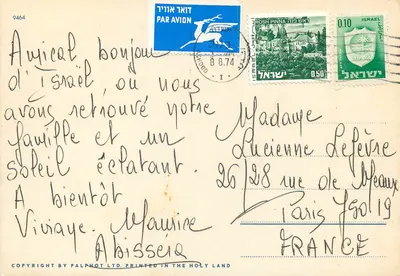 9464
דואר אוויר
PAR AVION
8.8.74
ROSH PINNA ראש פינה
ישראל 0.50
0.10 ISRAEL
ישראל
Amical bonjour
d'Israël, où nous
avons retrouvé notre
famille et un
soleil éclatant.
A bientôt
Viviane. Maurice
Abissera
Madame
Lucienne Lefèvre
26/28 rue de Meaux
Paris 75019
FRANCE
COPYRIGHT BY PALPHOT LTD. PRINTED IN THE HOLY LAND